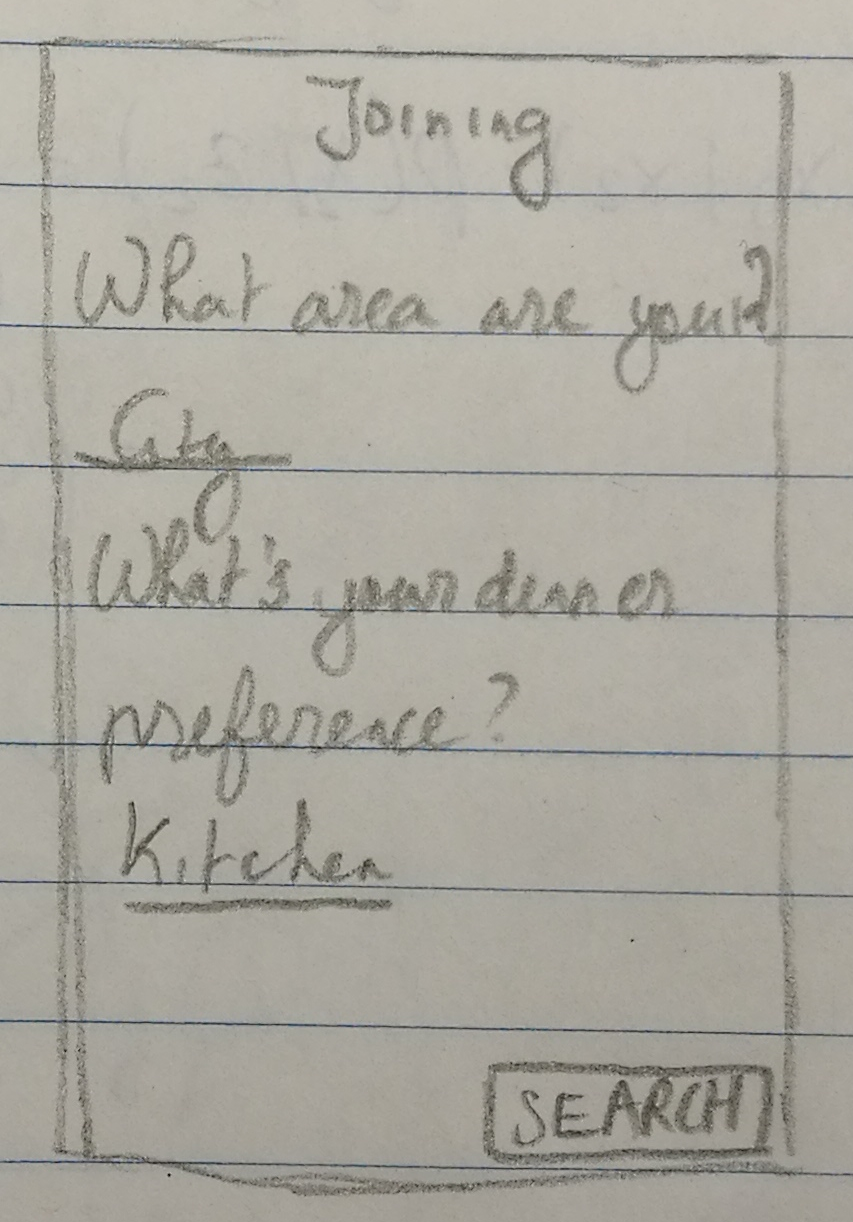 Joining
What area are you in?
City
What's your dinner
preference?
Kitchen
SEARCH